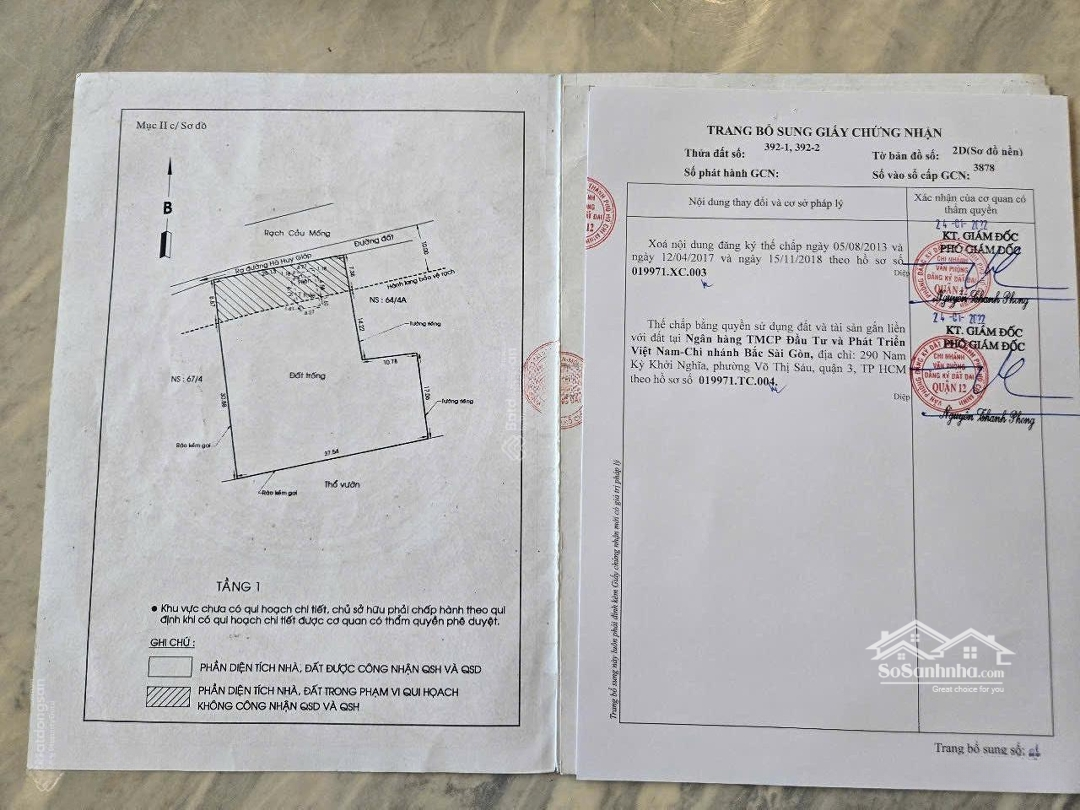 Mục II c/ Sơ đồ
B
Rạch Cầu Mống
Đường đất
10.00
Ra đường Hà Huy Giáp
Hành lang bảo vệ rạch
NS : 64/4A
14.22
Tường riêng
10.78
Đất trống
NS : 67/4
Tường riêng
Rào kẽm gai
37.54
Rào kẽm gai
Thổ vườn
TẦNG 1
• Khu vực chưa có qui hoạch chi tiết, chủ sở hữu phải chấp hành theo qui
định khi có qui hoạch chi tiết được cơ quan có thẩm quyền phê duyệt.
GHI CHÚ :
PHẦN DIỆN TÍCH NHÀ, ĐẤT ĐƯỢC CÔNG NHẬN QSH VÀ QSD
PHẦN DIỆN TÍCH NHÀ, ĐẤT TRONG PHẠM VI QUI HOẠCH
KHÔNG CÔNG NHẬN QSD VÀ QSH
Batdongsan
TRANG BỔ SUNG GIẤY CHỨNG NHẬN
Thửa đất số: 392-1, 392-2 Tờ bản đồ số: 2D(Sơ đồ nền)
Số phát hành GCN: Số vào sổ cấp GCN: 3878
Nội dung thay đổi và cơ sở pháp lý
Xác nhận của cơ quan có
thẩm quyền
24-01-2022
KT. GIÁM ĐỐC
PHÓ GIÁM ĐỐC
Xoá nội dung đăng ký thế chấp ngày 05/08/2013 và
ngày 12/04/2017 và ngày 15/11/2018 theo hồ sơ số
019971.XC.003
Diệp
CHI NHÁNH
VĂN PHÒNG
ĐĂNG KÝ ĐẤT ĐAI
QUẬN 12
Nguyễn Thanh Phong
24-01-2022
KT. GIÁM ĐỐC
PHÓ GIÁM ĐỐC
Thế chấp bằng quyền sử dụng đất và tài sản gắn liền
với đất tại Ngân hàng TMCP Đầu Tư và Phát Triển
Việt Nam-Chi nhánh Bắc Sài Gòn, địa chỉ: 290 Nam
Kỳ Khởi Nghĩa, phường Võ Thị Sáu, quận 3, TP HCM
theo hồ sơ số 019971.TC.004.
Diệp
CHI NHÁNH
VĂN PHÒNG
ĐĂNG KÝ ĐẤT ĐAI
QUẬN 12
Nguyễn Thanh Phong
Trang bổ sung này luôn phải đính kèm Giấy chứng nhận mới có giá trị pháp lý
SoSanhnha.com
Great choice for you
Trang bổ sung số: